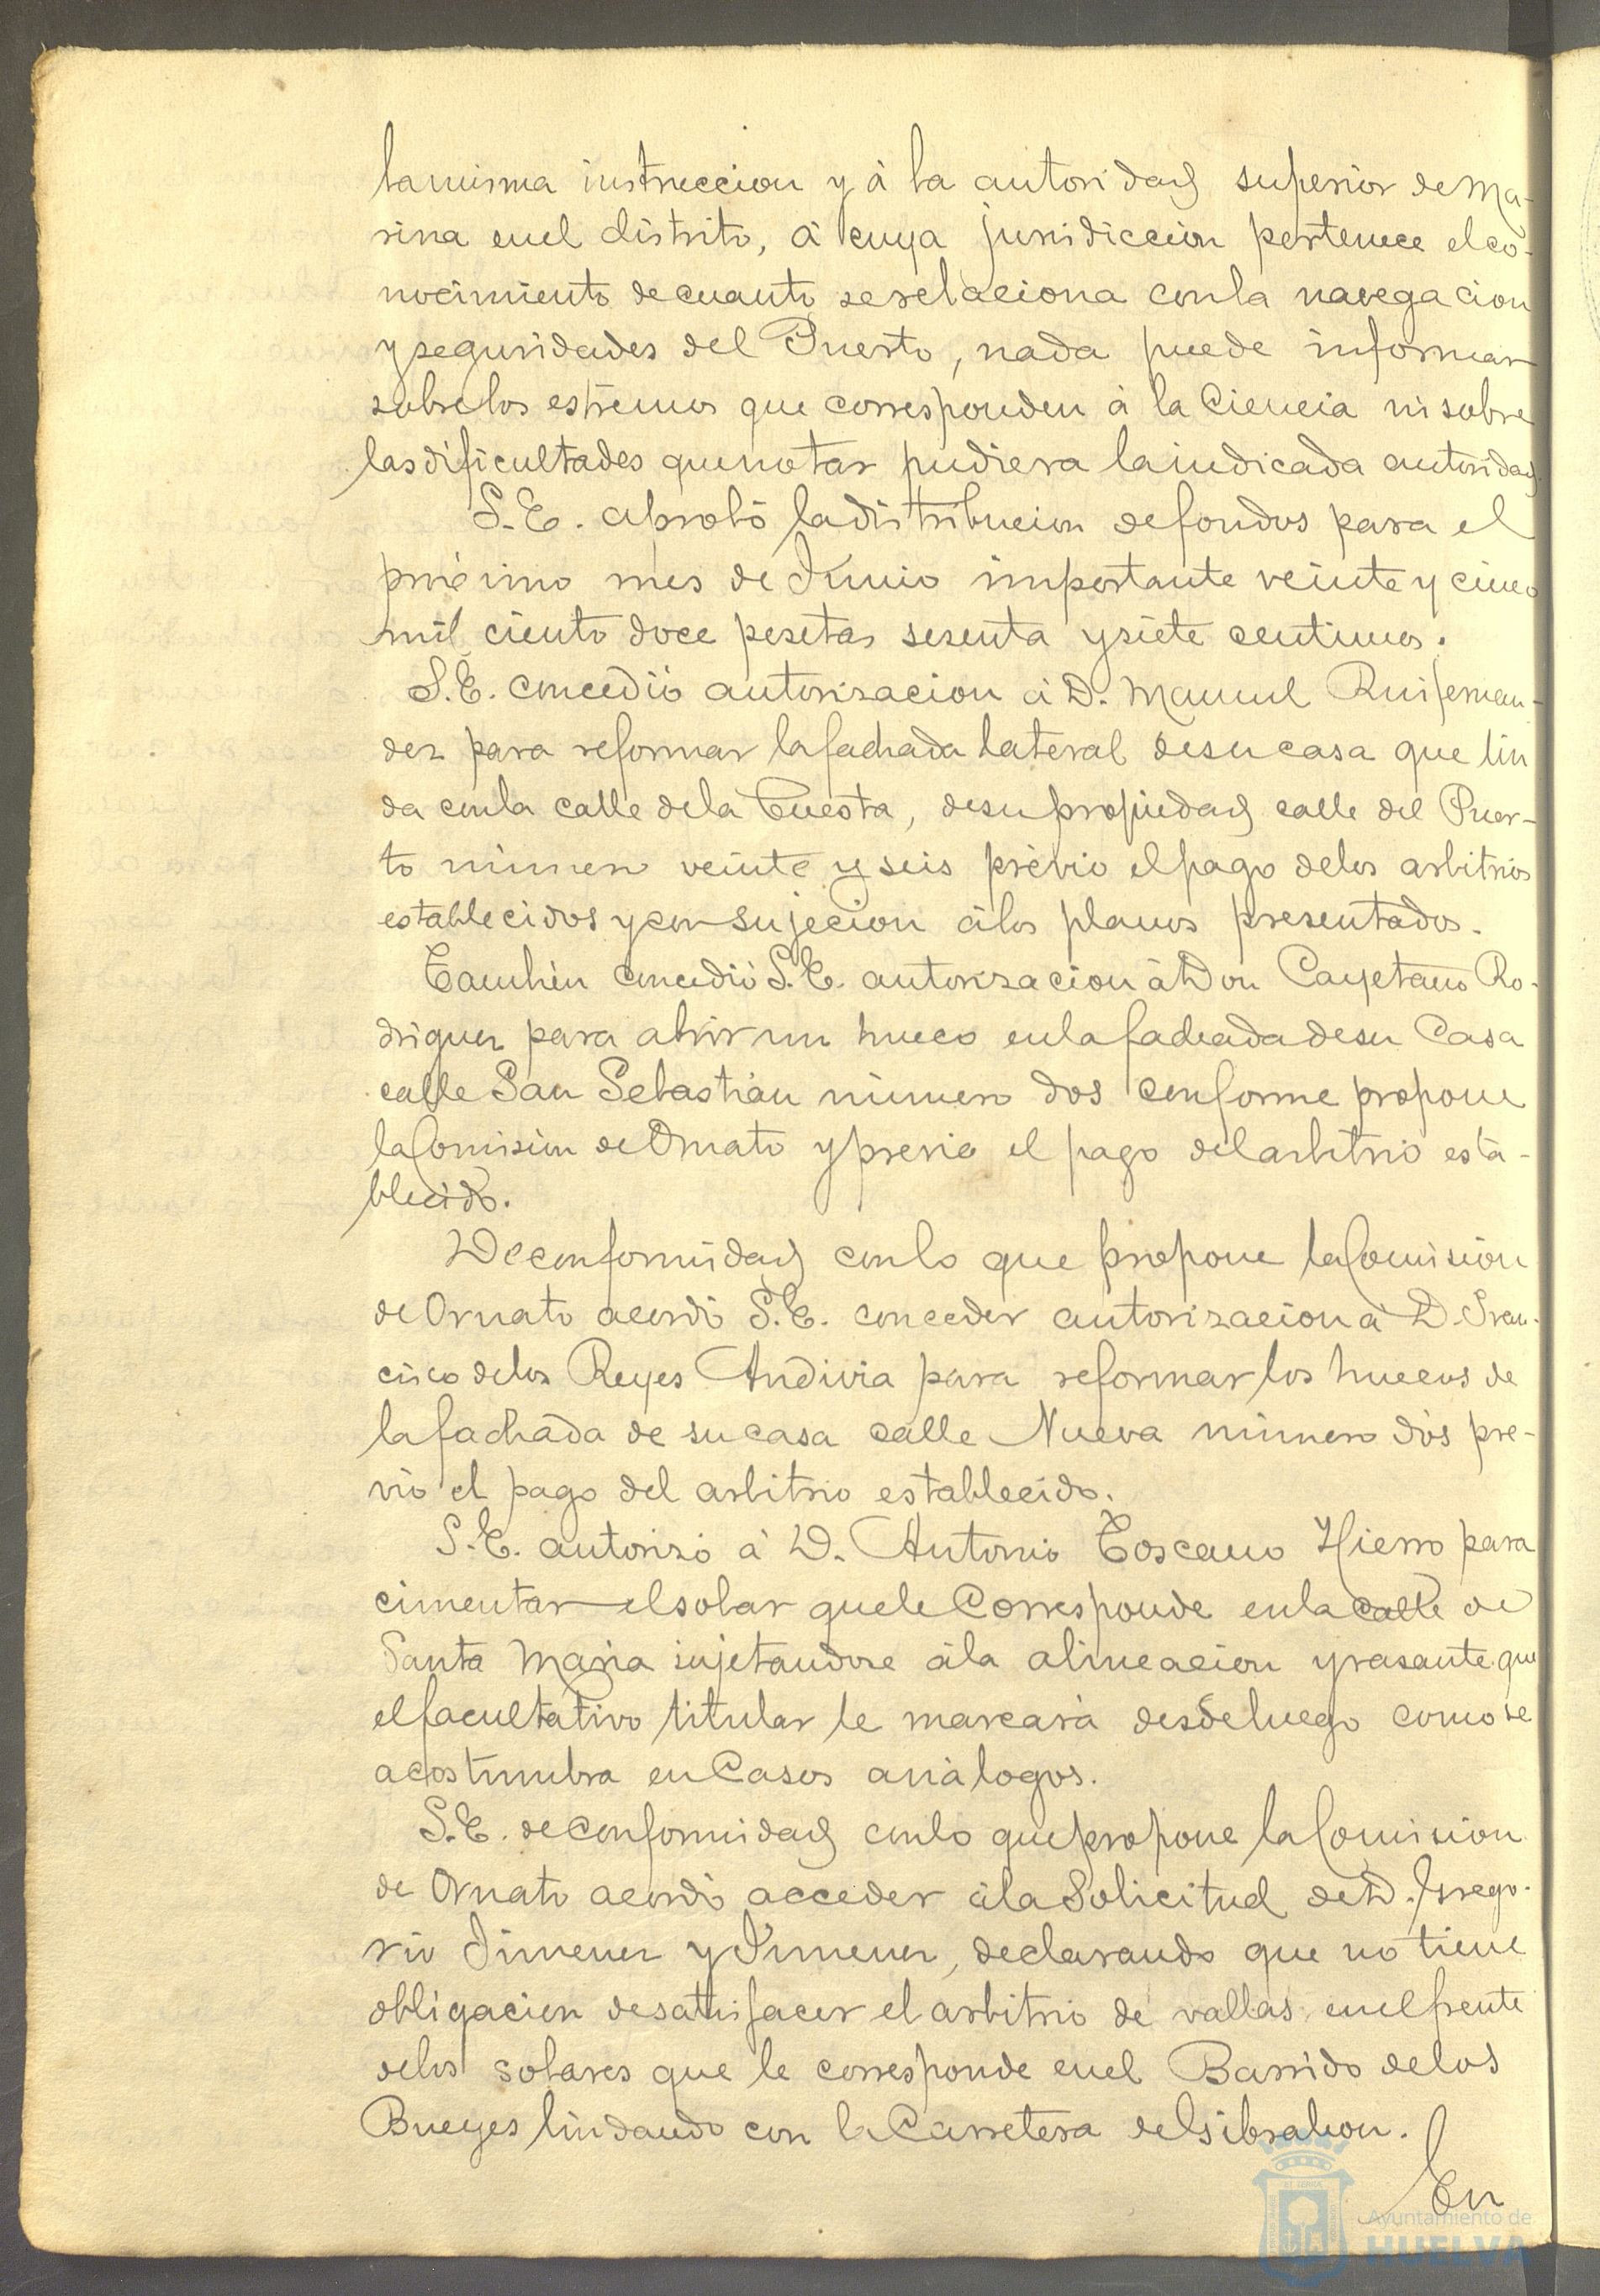 la misma instruccion y à la autoridad superior de Ma-
rina en el distrito, à cuya jurisdiccion pertenece el co-
nocimiento de cuanto se relaciona con la navegacion
y seguridades del Puerto, nada puede informar
sobre los estremos que corresponden à la Ciencia ni sobre
las dificultades que notar pudiera la indicada autoridad.
S. E. aprobó la distribucion de fondos para el
proximo mes de Junio importante veinte y cinco
mil ciento doce pesetas sesenta y siete centimos.
S. E. concedió autorizacion à D. Manuel Rui fernan-
dez para reformar la fachada lateral de su casa que lin
da con la calle de la Cuesta, de su propiedad calle del Puer-
to número veinte y seis prévio el pago de los arbitrios
establecidos y con sujecion à los planos presentados.
Tambien concedió S. E. autorizacion à Don Cayetano Ro-
driguez para abrir un hueco en la fachada de su Casa
calle San Sebastián número dos conforme propone
la Comision de Ornato y previo el pago del arbitrio esta-
blecido.
De conformidad con lo que propone la Comision
de Ornato acordó S. E. conceder autorizacion à D. Fran-
cisco de los Reyes Andivia para reformar los huecos de
la fachada de su casa calle Nueva número dos pre-
vio el pago del arbitrio establecido.
S. E. autorizó à D. Antonio Toscano Hierro para
cimentar el solar que le Corresponde en la calle de
Santa Maria sujetandose à la alineacion y rasante que
el facultativo titular le marcará desde luego como se
acostumbra en Casos análogos.
S. E. de conformidad con lo que propone la Comision
de Ornato acordó acceder à la Solicitud de D. Grego-
rio Jimenez y Jimenez, declarando que no tiene
obligacion de satisfacer el arbitrio de vallas en el frente
de los solares que le corresponde en el Barrido de los
Bueyes lindando con la Carretera del
En
Ayuntamiento de
HUELVA